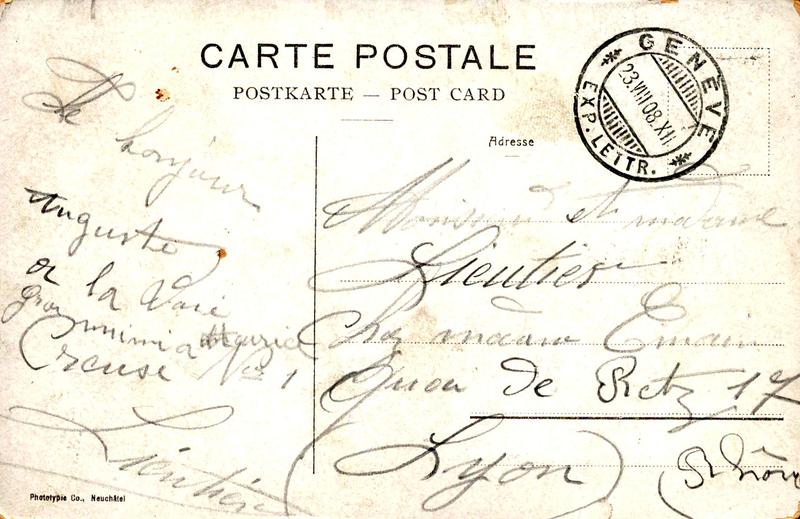 CARTE POSTALE
POSTKARTE — POST CARD
GENÈVE
23.VIII.08.XII
EXP. LETTR.
Adresse
Le bonjour
Auguste
a la Vaie
gros mimi a Maurice
Creuse No 1
Lieutier
Monsieur et madame
Lieutier
Chez madame
Quai de Retz 17
Lyon (Rhône
Photocypie Co., Neuchâtel